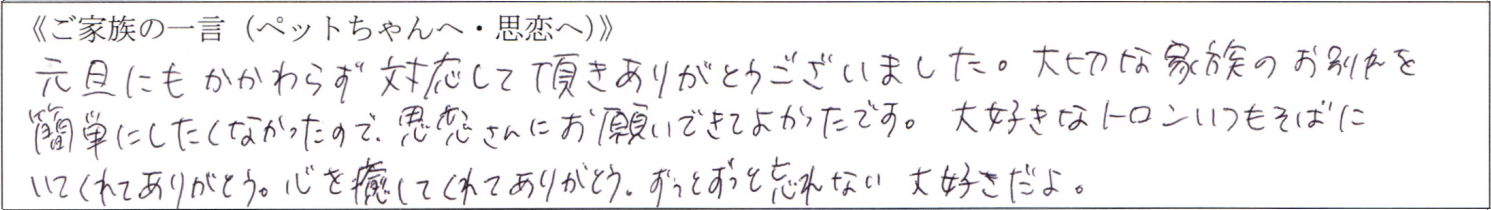 《ご家族の一言（ペットちゃんへ・思恋へ）》
元旦にもかかわらず対応して頂きありがとうございました。大切な家族のお別れを
簡単にしたくなかったので、思恋さんにお願いできてよかったです。大好きなトロンいつもそばに
いてくれてありがとう。心を癒してくれてありがとう。ずっとずっと忘れない 大好きだよ。